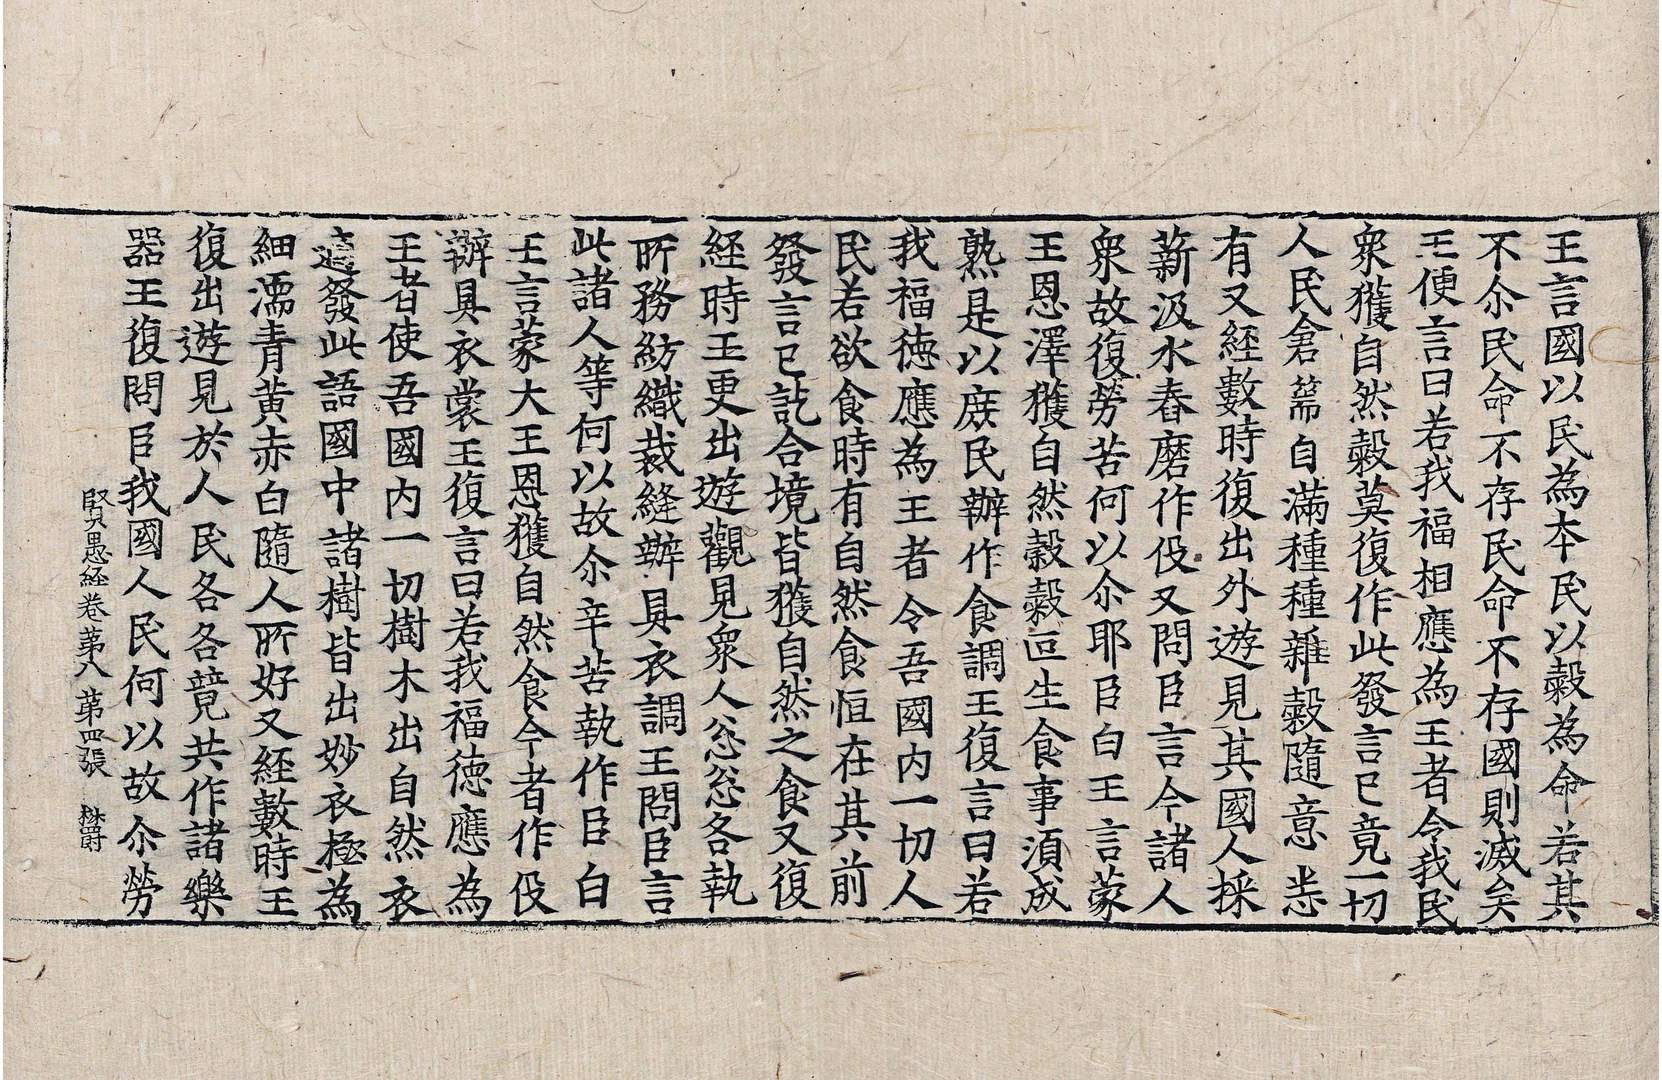 王言國以民為本民以糓為命若其
不尒民命不存民命不存國則滅矣
王便言曰若我福相應為王者令我民
衆獲自然糓莫復作此發言已竟一切
人民倉篅自滿種種雜糓隨意悉
有又經數時復出外遊見其國人採
薪汲水舂磨作伇又問臣言今諸人
衆故復勞苦何以尒耶臣白王言蒙
王恩澤獲自然糓糓叵生食事湏成
熟是以庻民辦作食調王復言曰若
我福德應為王者令吾國内一切人
民若欲食時有自然食恒在其前
發言已訖合境皆獲自然之食又復
経時王更出遊觀見衆人忩忩各執
所務紡織裁縫辦具衣調王問臣言
此諸人等何以故尒辛苦執作臣白
王言蒙大王恩獲自然食今者作伇
辦具衣裳王復言曰若我福德應為
王者使吾國内一切樹木出自然衣
適發此語國中諸樹皆出妙衣極為
細濡青黄赤白隨人所好又経數時王
復出遊見於人民各各競共作諸樂
器王復問臣我國人民何以故尒勞
賢愚経卷苐八 苐四張 楙爵